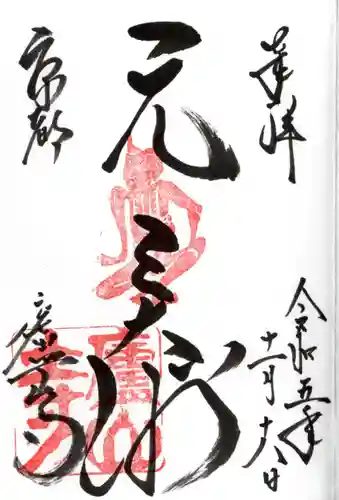 奉拝
令和五年
十一月十六日
元三大師
京都
廬山寺
廬山寺